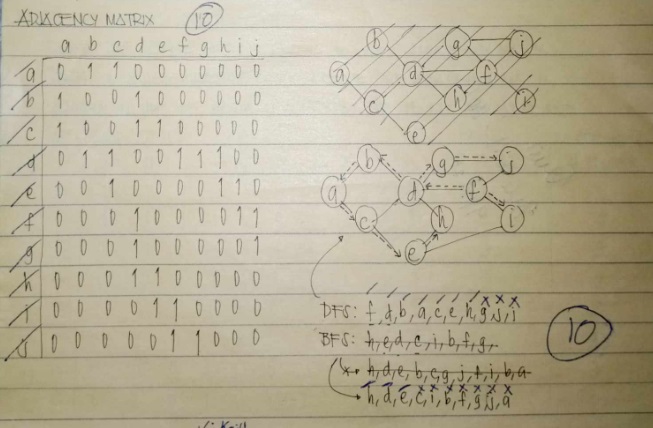 ADJACENCY MATRIX 10
a b c d e f g h i j
a 0 1 1 0 0 0 0 0 0 0
b 1 0 0 1 0 0 0 0 0 0
c 1 0 0 1 1 0 0 0 0 0
d 0 1 1 0 0 1 1 1 0 0
e 0 0 1 0 0 0 0 1 1 0
f 0 0 0 1 0 0 0 0 1 1
g 0 0 0 1 0 0 0 0 0 1
h 0 0 0 1 1 0 0 0 0 0
i 0 0 0 0 1 1 0 0 0 0
j 0 0 0 0 0 1 1 0 0 0
b g j
a d f
c h i
e
b g j
a d f
c h i
e
DFS: f, d, b, a, c, e, h, g, j, i
BFS: h, e, d, c, i, b, f, g,
h, d, e, b, c, g, j, f, i, b, a
h, d, e, c, i, b, f, g, j, a
10